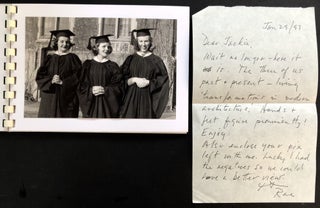 Jan 29/97
Dear Jackie
Wait no longer - here it
is. The three of us
past & present - living
transformations in modern
architecture. Hands &
feet figure prominently!
Enjoy.
Also enclose your pix
left with me. Lucky I had
the negatives so we could
have a better view.